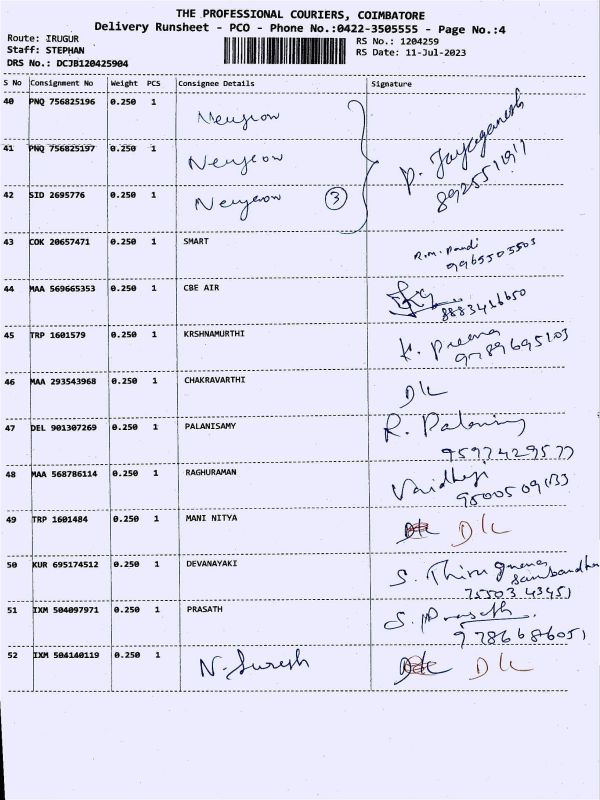 THE PROFESSIONAL COURIERS, COIMBATORE
Delivery Runsheet - PCO - Phone No.:0422-3505555 - Page No.:4
Route: IRUGUR
Staff: STEPHAN
DRS No.: DCJB120425904
RS No.: 1204259
RS Date: 11-Jul-2023
S No Consignment No Weight PCS Consignee Details Signature
40 PNQ 756825196 0.250 1
41 PNQ 756825197 0.250 1
P. Jayaganesh
8925511911
42 SID 2695776 0.250 1 3
43 COK 20657471 0.250 1 SMART R.M. Pandi
9965505503
44 MAA 569665353 0.250 1 CBE AIR
8883416650
45 TRP 1601579 0.250 1 KRSHNAMURTHI K. Preena
9789695103
46 MAA 293543968 0.250 1 CHAKRAVARTHI D/L
47 DEL 901307269 0.250 1 PALANISAMY R. Palanisamy
9597429577
48 MAA 568786114 0.250 1 RAGHURAMAN Vaidhegi
9500509133
49 TRP 1601484 0.250 1 MANI NITYA D/L
50 KUR 695174512 0.250 1 DEVANAYAKI S. Thirugnana
Sambandha
7550343451
51 IXM 504097971 0.250 1 PRASATH S. Prasath.
9786686051
52 IXM 504140119 0.250 1 N. Suresh D/L